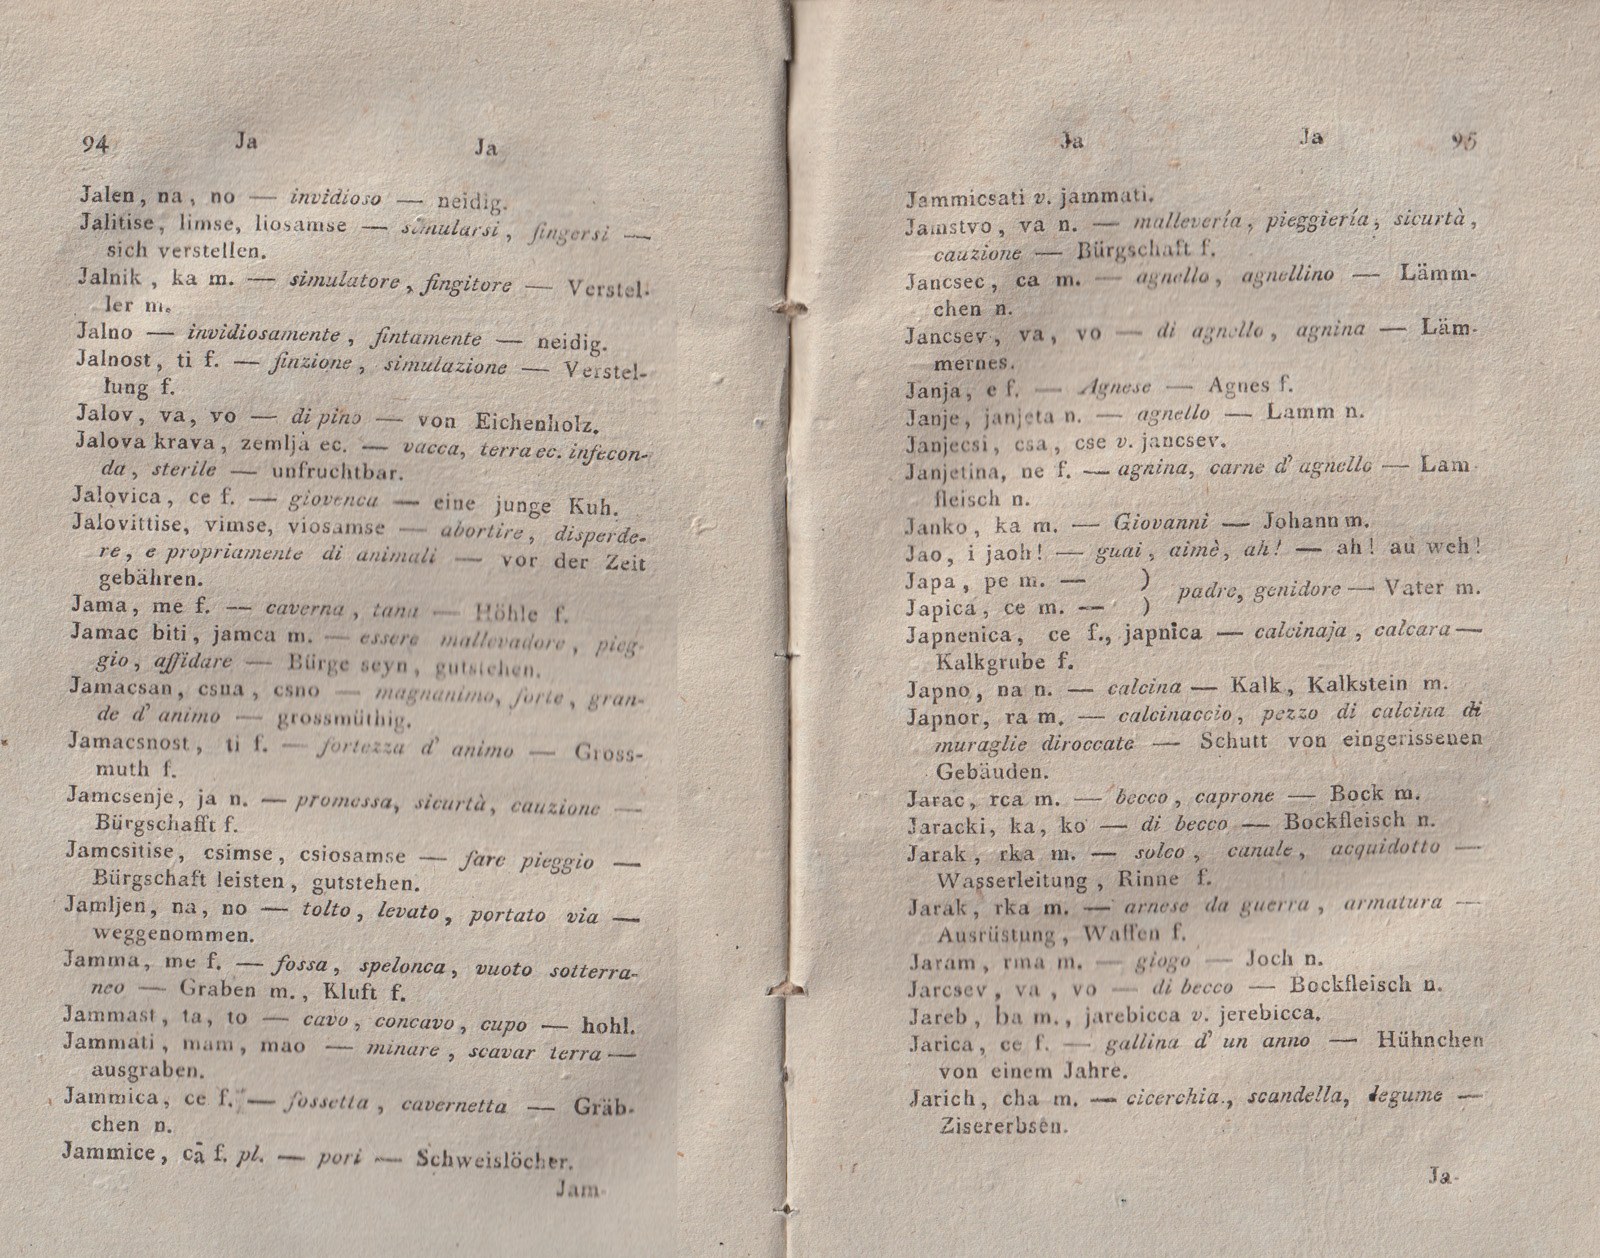 94 Ja Ja
Jalen, na, no — invidioso — neidig.
Jalitise, limse, liosamse — simularsi, fingersi —
sich verstellen.
Jalnik, ka m. — simulatore, fingitore — Verstel-
ler m.
Jalno — invidiosamente, fintamente — neidig.
Jalnost, ti f. — finzione, simulazione — Verstel-
lung f.
Jalov, va, vo — di pino — von Eichenholz.
Jalova krava, zemlja ec. — vacca, terra ec. infecon-
da, sterile — unfruchtbar.
Jalovica, ce f. — giovenca — eine junge Kuh.
Jalovittise, vimse, viosamse — abortire, disperde-
re, e propriamente di animali — vor der Zeit
gebähren.
Jama, me f. — caverna, tana — Höhle f.
Jamac biti, jamca m. — essere mallevadore, pieg-
gio, affidare — Bürge seyn, gutstehen.
Jamacsan, csna, csno — magnanimo, forte, gran-
de d' animo — grossmüthig.
Jamacsnost, ti f. — fortezza d' animo — Gross-
muth f.
Jamcsenje, ja n. — promessa, sicurtà, cauzione —
Bürgschafft f.
Jamcsitise, csimse, csiosamse — fare pieggio —
Bürgschaft leisten, gutstehen.
Jamljen, na, no — tolto, levato, portato via —
weggenommen.
Jamma, me f. — fossa, spelonca, vuoto sotterra-
neo — Graben m., Kluft f.
Jammast, ta, to — cavo, concavo, cupo — hohl.
Jammati, mam, mao — minare, scavar terra —
ausgraben.
Jammica, ce f. — fossetta, cavernetta — Gräb-
chen n.
Jammice, cā f. pl. — pori — Schweislöcher.
Jam-
Ja Ja 95
Jammicsati v. jammati.
Jamstvo, va n. — mallevería, pieggiería, sicurtà,
cauzione — Bürgschaft f.
Jancsec, ca m. — agnello, agnellino — Lämm-
chen n.
Jancsev, va, vo — di agnello, agnina — Läm-
mernes.
Janja, e f. — Agnese — Agnes f.
Janje, janjeta n. — agnello — Lamm n.
Janjecsi, csa, cse v. jancsev.
Janjetina, ne f. — agnina, carne d' agnello — Lam-
fleisch n.
Janko, ka m. — Giovanni — Johann m.
Jao, i jaoh! — guai, aimè, ah! — ah! au weh!
Japa, pe m. — )
padre, genidore — Vater m.
Japica, ce m. — )
Japnenica, ce f., japnica — calcinaja, calcara —
Kalkgrube f.
Japno, na n. — calcina — Kalk, Kalkstein m.
Japnor, ra m. — calcinaccio, pezzo di calcina di
muraglie diroccate — Schutt von eingerissenen
Gebäuden.
Jarac, rca m. — becco, caprone — Bock m.
Jaracki, ka, ko — di becco — Bockfleisch n.
Jarak, rka m. — solco, canale, acquidotto —
Wasserleitung, Rinne f.
Jarak, rka m. — arnese da guerra, armatura —
Ausrüstung, Waffen f.
Jaram, rma m. — giogo — Joch n.
Jarcsev, va, vo — di becco — Bockfleisch n.
Jareb, ba m., jarebicca v. jerebicca.
Jarica, ce f. — gallina d' un anno — Hühnchen
von einem Jahre.
Jarich, cha m. — cicerchia., scandella, legume —
Zisererbsen.
Ja-